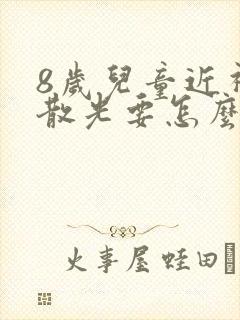 8歲兒童近
散光要怎麼
火事屋蛙田